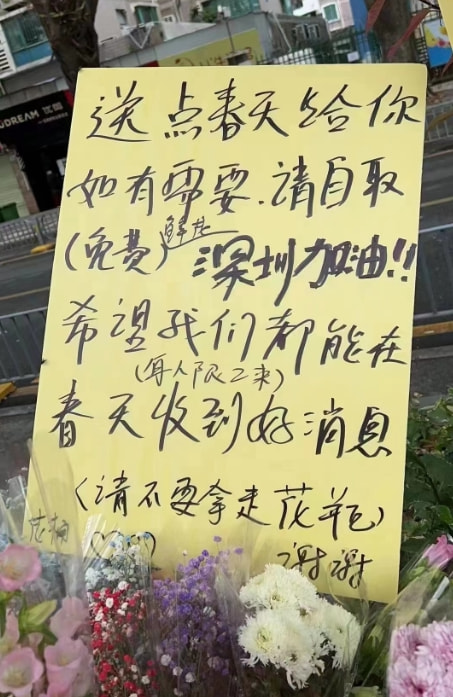 UDREAM
送点春天给你
如有需要.请自取
(免费)鲜花 深圳加油!!
希望我们都能在
(每人限二束)
春天收到好消息
(请不要拿走花瓶)
谢谢